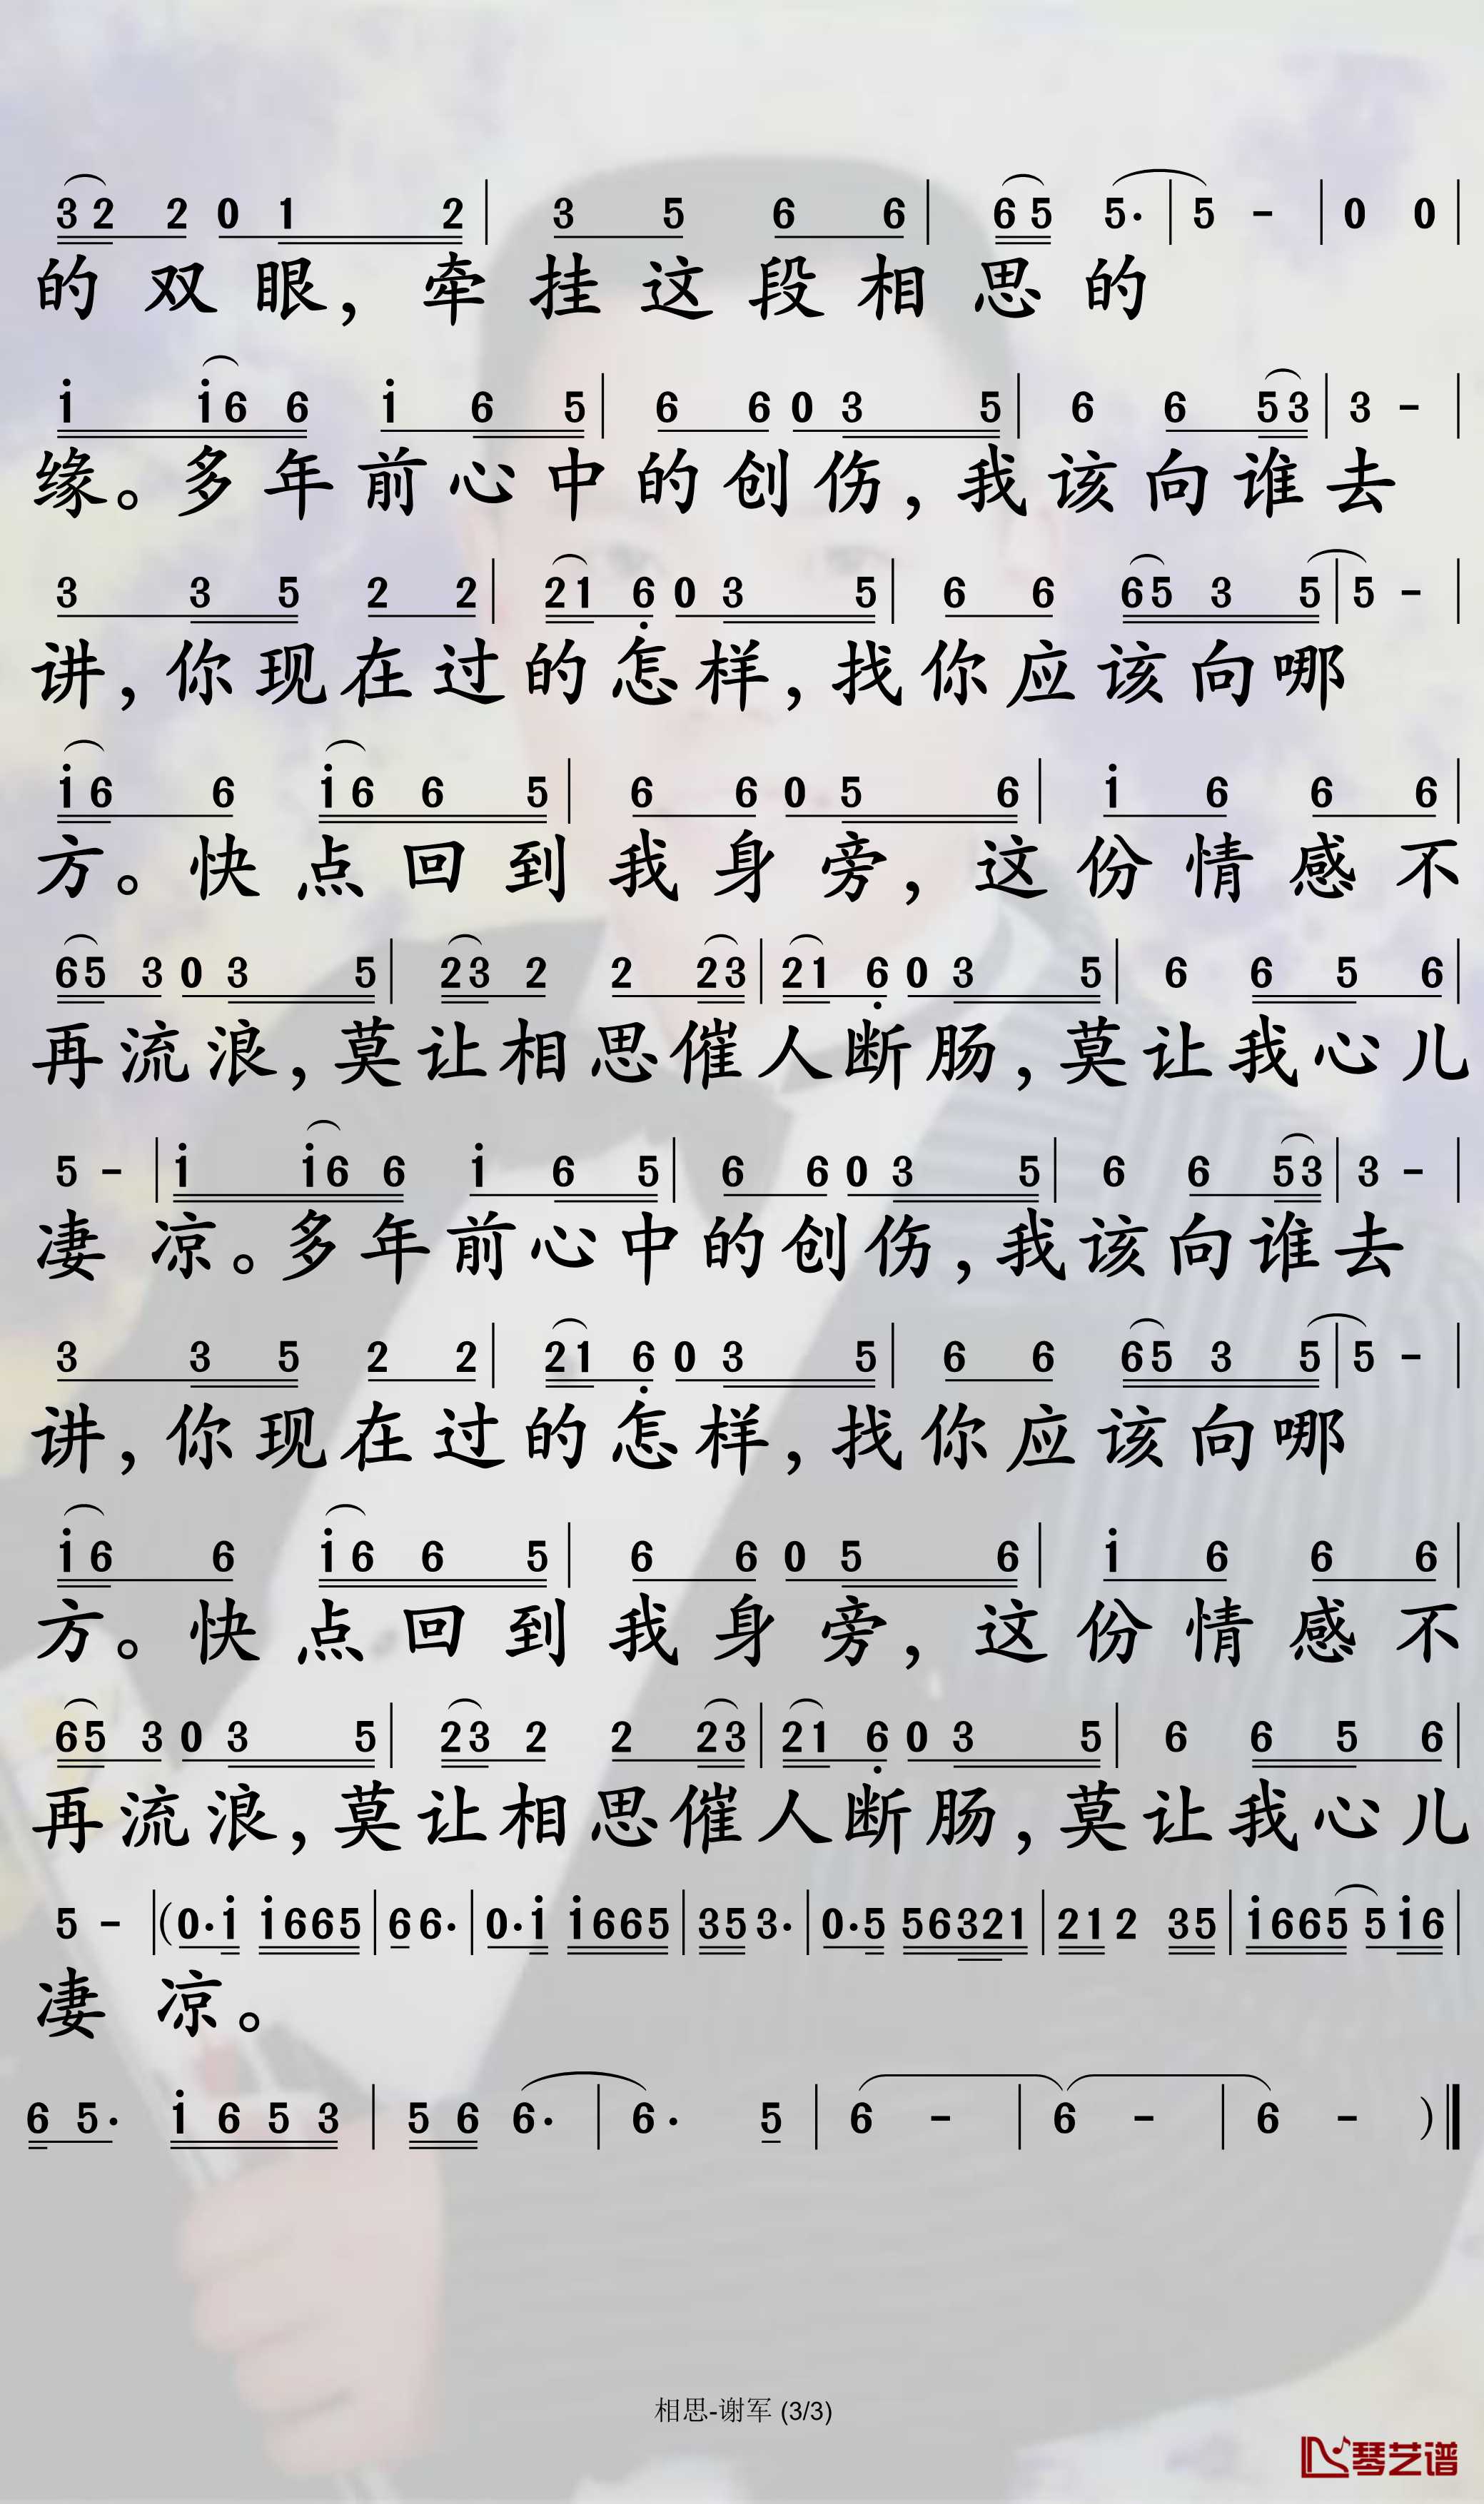 3 2 2 0 1 2 | 3 5 6 6 | 6 5 5· | 5 - | 0 0 |
的双眼，牵挂这段相思的
i i 6 6 i 6 5 | 6 6 0 3 5 | 6 6 5 3 | 3 - |
缘。多年前心中的创伤，我该向谁去
3 3 5 2 2 | 2 1 6 0 3 5 | 6 6 6 5 3 5 | 5 - |
讲，你现在过的怎样，找你应该向哪
i 6 6 i 6 6 5 | 6 6 0 5 6 | i 6 6 6 |
方。快点回到我身旁，这份情感不
6 5 3 0 3 5 | 2 3 2 2 2 3 | 2 1 6 0 3 5 | 6 6 5 6 |
再流浪，莫让相思催人断肠，莫让我心儿
5 - | i i 6 6 i 6 5 | 6 6 0 3 5 | 6 6 5 3 | 3 - |
凄凉。多年前心中的创伤，我该向谁去
3 3 5 2 2 | 2 1 6 0 3 5 | 6 6 6 5 3 5 | 5 - |
讲，你现在过的怎样，找你应该向哪
i 6 6 i 6 6 5 | 6 6 0 5 6 | i 6 6 6 |
方。快点回到我身旁，这份情感不
6 5 3 0 3 5 | 2 3 2 2 2 3 | 2 1 6 0 3 5 | 6 6 5 6 |
再流浪，莫让相思催人断肠，莫让我心儿
5 - | (0·i i665 | 6 6· | 0·i i665 | 35 3· | 0·5 56321 | 21 2 35 | i665 5i6 |
凄凉。
6 5· i 6 5 3 | 5 6 6· | 6· 5 | 6 - | 6 - | 6 - )‖
相思-谢军 (3/3)
琴艺谱